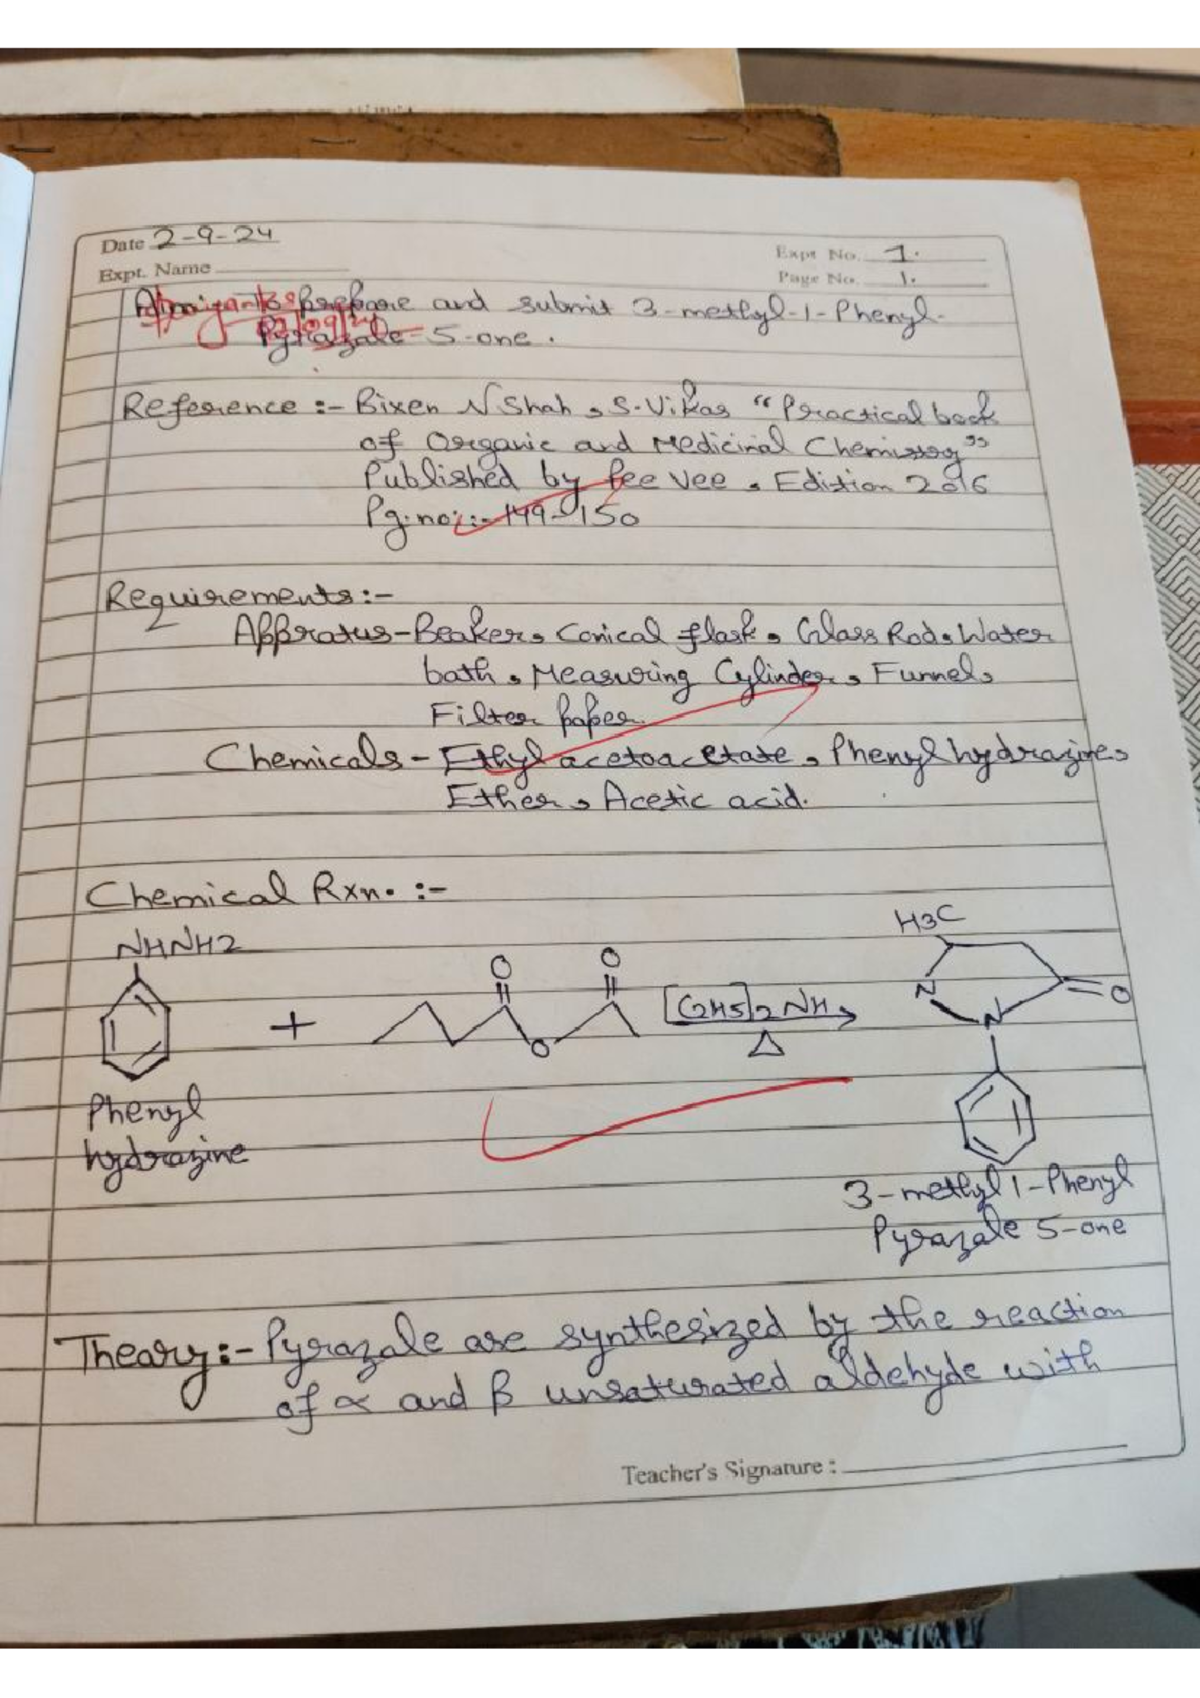 Date 2-9-24
Expt No. 1.
Expt. Name
Page No. 1.
prepare and submit 3-methyl-1-Phenyl-
Pyrazale-5-one.
Reference :- Bixen N Shah, S.Vikas "Practical book
of Organic and Medicinal Chemistry"
Published by Pee Vee, Edition 2016
Pg.no.:- 149-150
Requirements:-
Appratus-Beaker, Conical flask, Glass Rod, Water
bath, Measuring Cylinder, Funnel,
Filter paper.
Chemicals - Ethyl acetoacetate, Phenyl hydrazine,
Ether, Acetic acid.
Chemical Rxn. :-
NHNH2
+
O
O
O
[C2H5]2 NH
△
H3C
N
N
O
Phenyl
hydrazine
3-methyl 1-Phenyl
Pyrazale 5-one
Theary:- Pyrazale are synthesized by the reaction
of α and β unsaturated aldehyde with
Teacher's Signature :